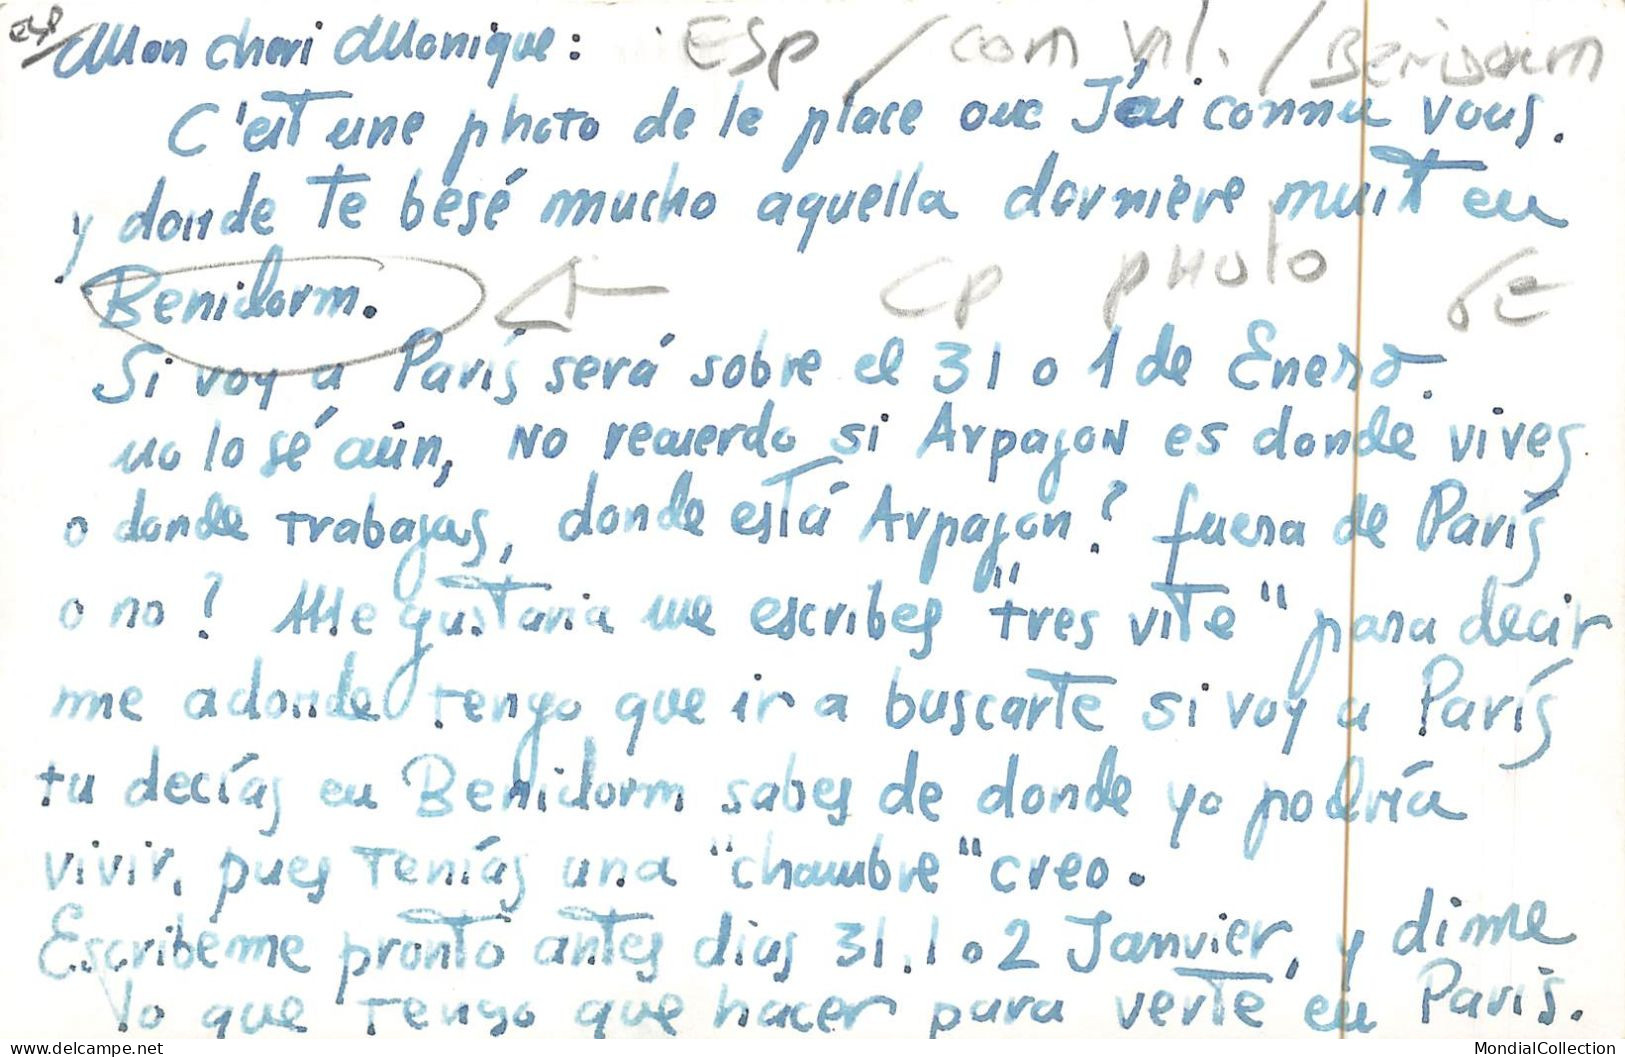 Mon cheri Monique:
ESP / com vil. / Benidorm
C'est une photo de le place ouc J'ai connu vous.
y donde te besé mucho aquella dorniere nuit en
Benidorm.
CP photo 6€
Si voy a París será sobre el 31 o 1 de Enero.
no lo sé aún, no recuerdo si Arpajon es donde vives
o donde trabajas, donde está Arpajon? fuera de París
o no? Me gustaria me escribes "tres vite" para decir
me adonde tengo que ir a buscarte si voy a París
tu decías en Benidorm sabes de donde yo podría
vivir, pues tenías una "chambre" creo.
Escribeme pronto antes dias 31, 1 o 2 Janvier, y dime
lo que tengo que hacer para verte en París.
MondialCollection